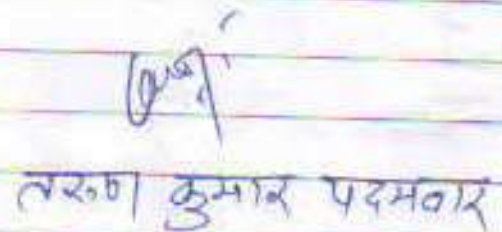 तरुण कुमार पदमवार